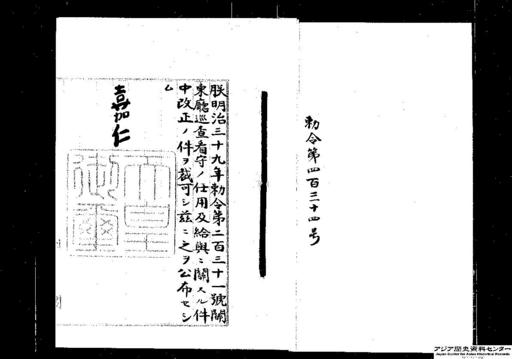 勅令第四百三十四号
朕明治三十九年勅令第二百三十一號關
東廳巡査看守ノ仕用及給與ニ關スル件
中改正ノ件ヲ裁可シ茲ニ之ヲ公布セシ
ム
嘉仁
天皇
御璽
アジア歴史資料センター
Japan Center for Asian Historical Records